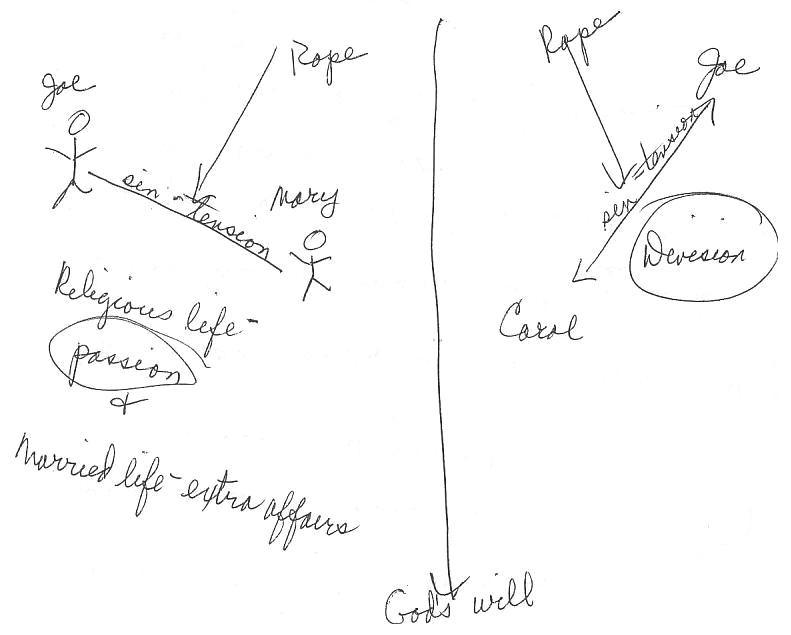 Rope
Joe
sin - tension
Mary
Religious life -
passion
+
Married life - extra affairs
Rope
Joe
sin = tension
Devision
Carol
God's will